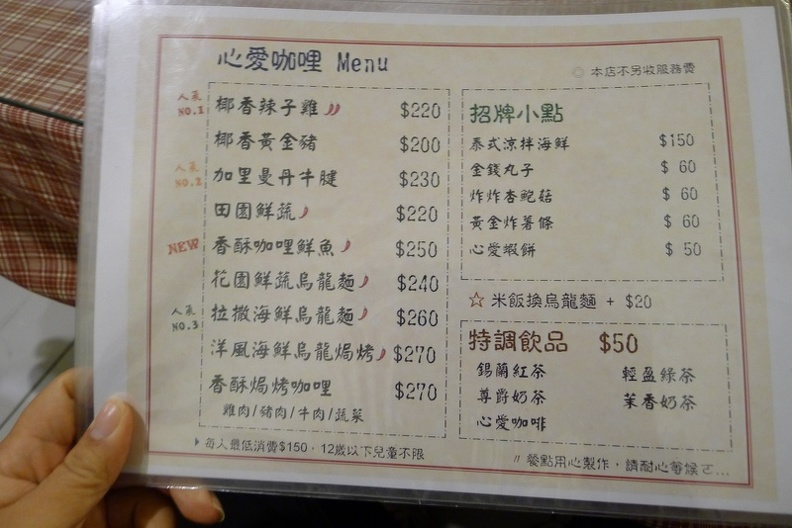 心愛咖哩 Menu
◎ 本店不另收服務費
人氣 NO.1
椰香辣子雞 $220
椰香黃金豬 $200
人氣 NO.2
加里曼丹牛腱 $230
田園鮮蔬 $220
NEW
香酥咖哩鮮魚 $250
花園鮮蔬烏龍麵 $240
人氣 NO.3
拉撒海鮮烏龍麵 $260
洋風海鮮烏龍焗烤 $270
香酥焗烤咖哩 $270
雞肉/豬肉/牛肉/蔬菜
招牌小點
泰式涼拌海鮮 $150
金錢丸子 $ 60
炸炸杏鮑菇 $ 60
黃金炸薯條 $ 60
心愛蝦餅 $ 50
☆ 米飯換烏龍麵 + $20
特調飲品 $50
錫蘭紅茶 輕盈綠茶
尊爵奶茶 茉香奶茶
心愛咖啡
每人最低消費$150，12歲以下兒童不限
〃餐點用心製作，請耐心等候ㄛ...